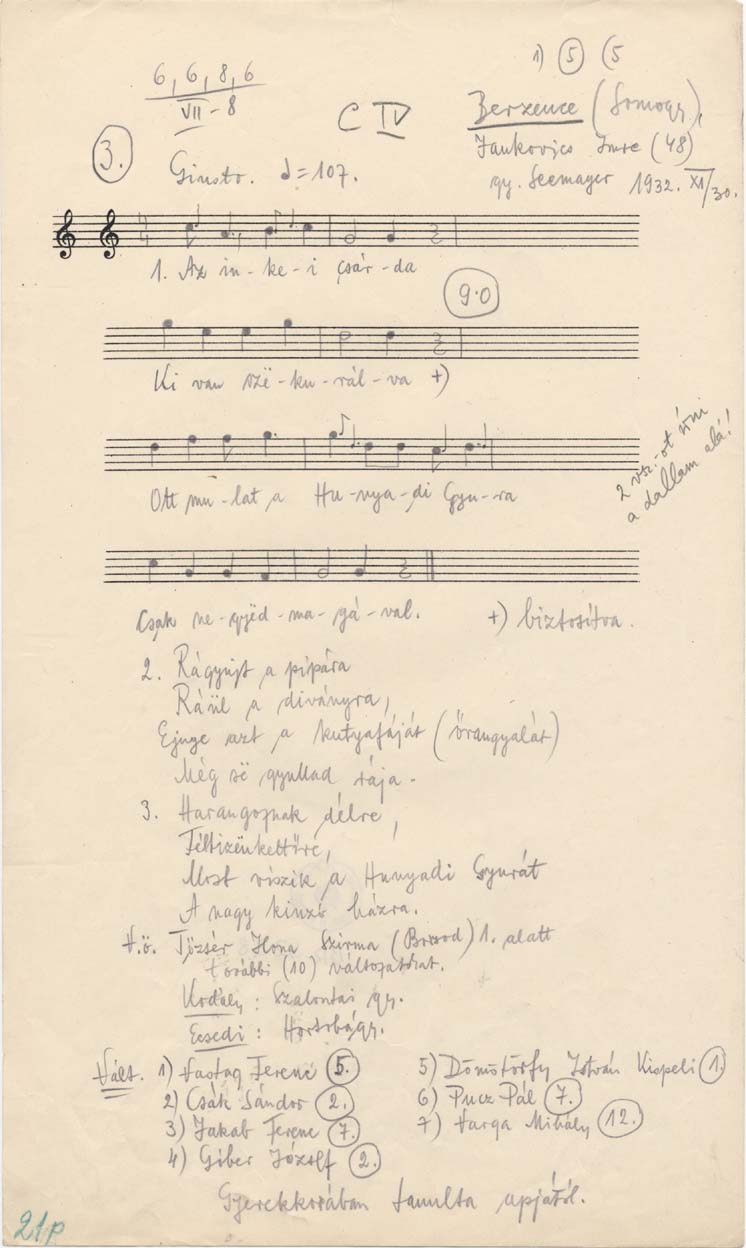 6, 6, 8, 6
VII - 8
1) 5 (5
C IV
Berzence (Somogy),
3.
Jankovics Imre (48)
Giusto. ♩=107.
gy. Seemayer 1932. XI/30.
1. Az in-ke-i csár-da
9·0
Ki van szë-ku-rál-va +)
2 vsz.-ot írni
a dallam alá!
Ott mu-lat a Hu-nya-di Gyu-ra
Csak ne-gyëd-ma-gá-val. +) biztosítva.
2. Rágyujt a pipára
Ráül a diványra,
Ejnye azt a kutyafáját (őrangyalát)
Még së gyullad rája.
3. Harangoznak délre,
Féltizënkettőre,
Most viszik a Hunyadi Gyurát
A nagy kinzó házra.
V.ö. Tőzsér Ilona Szirma (Borsod) 1. alatt
további (10) változatokat.
Kodály: Szalontai gy.
Ecsedi: Hortobágy.
Vált. 1) Vastag Ferenc 5.
2) Csák Sándor 2.
3) Jakab Ferenc 7.
4) Giber József 2.
5) Dömötörfy István Kispeli 1.
6) Pucz Pál 7.
7) Varga Mihály 12.
Gyerekkorában tanulta apjától.
21p